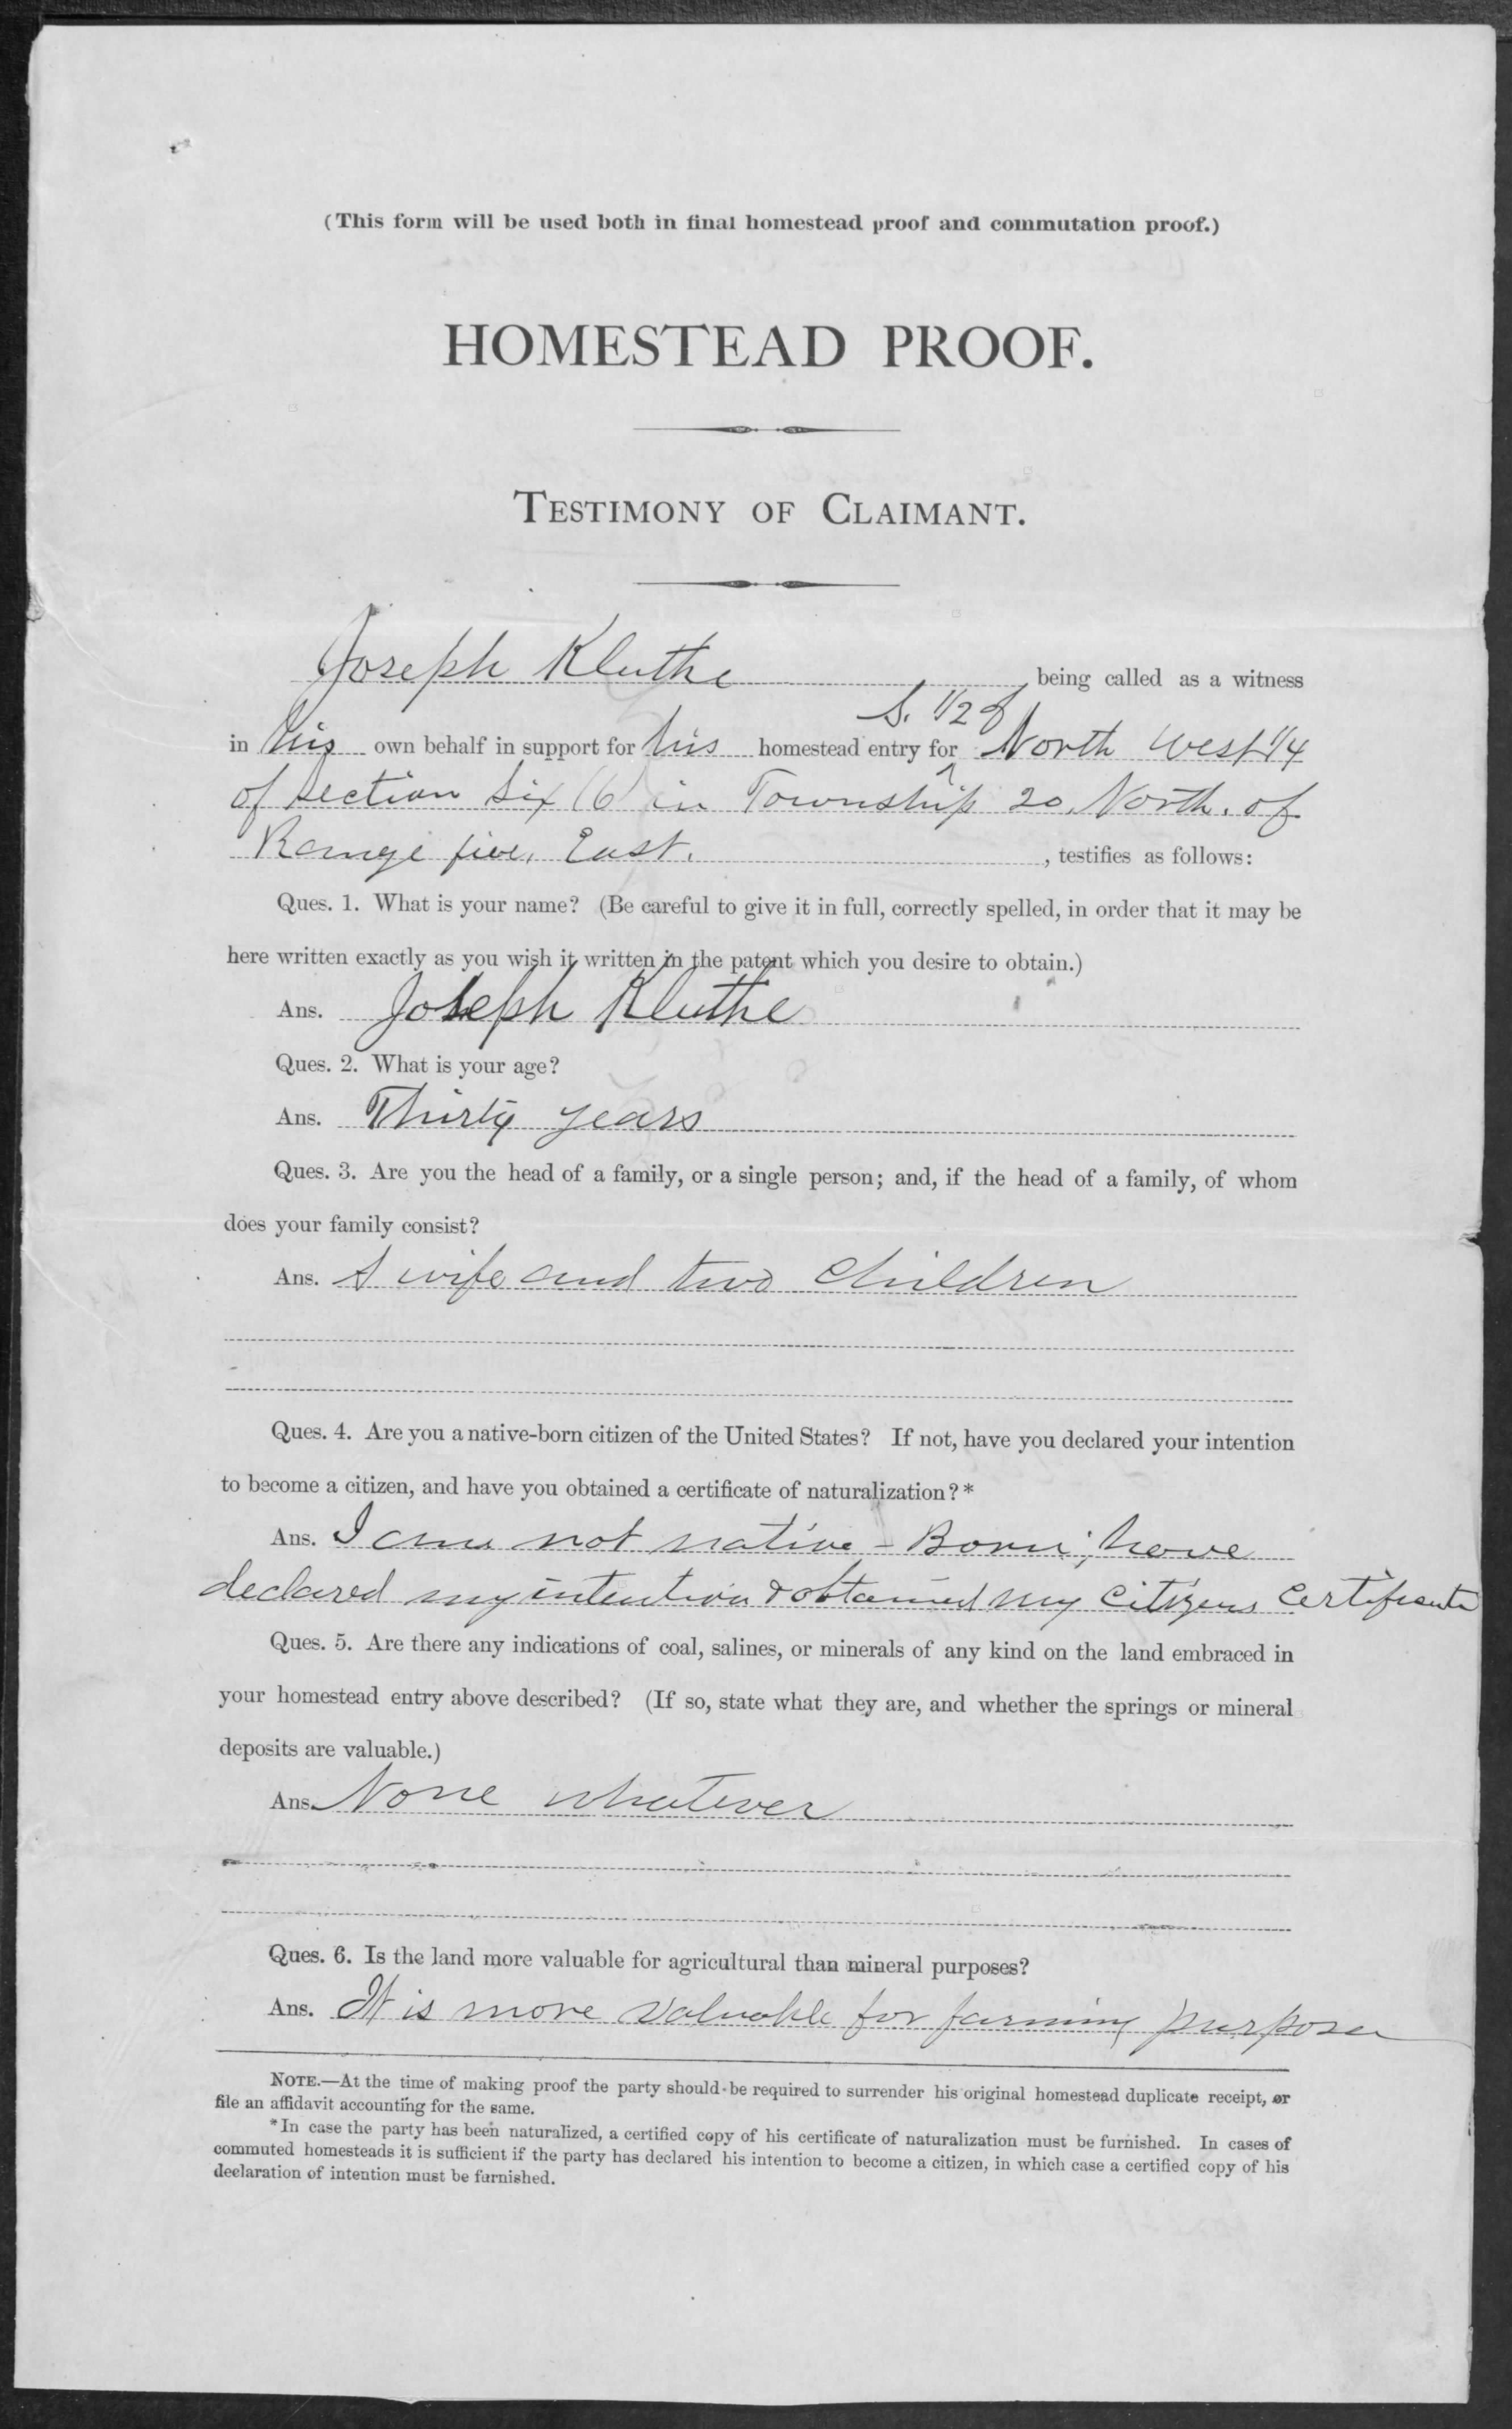 (This form will be used both in final homestead proof and commutation proof.)
HOMESTEAD PROOF.
TESTIMONY OF CLAIMANT.
Joseph Kluthe being called as a witness
S. 1/2 of
in his own behalf in support for his homestead entry for ^ North West 1/4
of Section Six (6) in Township 20 North. of
Range five, East. , testifies as follows:
Ques. 1. What is your name? (Be careful to give it in full, correctly spelled, in order that it may be
here written exactly as you wish it written in the patent which you desire to obtain.)
Ans. Joseph Kluthe
Ques. 2. What is your age?
Ans. Thirty years
Ques. 3. Are you the head of a family, or a single person; and, if the head of a family, of whom
does your family consist?
Ans. A wife and two children
Ques. 4. Are you a native-born citizen of the United States? If not, have you declared your intention
to become a citizen, and have you obtained a certificate of naturalization?*
Ans. I am not native-Born; have
declared my intention & obtained my Citizens Certificate
Ques. 5. Are there any indications of coal, salines, or minerals of any kind on the land embraced in
your homestead entry above described? (If so, state what they are, and whether the springs or mineral
deposits are valuable.)
Ans. None whatever
Ques. 6. Is the land more valuable for agricultural than mineral purposes?
Ans. It is more valuable for farming purposes
NOTE.—At the time of making proof the party should be required to surrender his original homestead duplicate receipt, or
file an affidavit accounting for the same.
*In case the party has been naturalized, a certified copy of his certificate of naturalization must be furnished. In cases of
commuted homesteads it is sufficient if the party has declared his intention to become a citizen, in which case a certified copy of his
declaration of intention must be furnished.